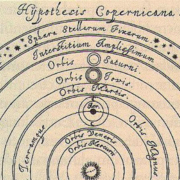 Hypothesis Copernicana
Sphæra Stellarum Fixarum
Interstitium Amplissimum
Orbis Saturni.
Orbis Iovis.
Orbis Martis.
Orbis Magnus
Orbis Veneris
Orbis Mercurii